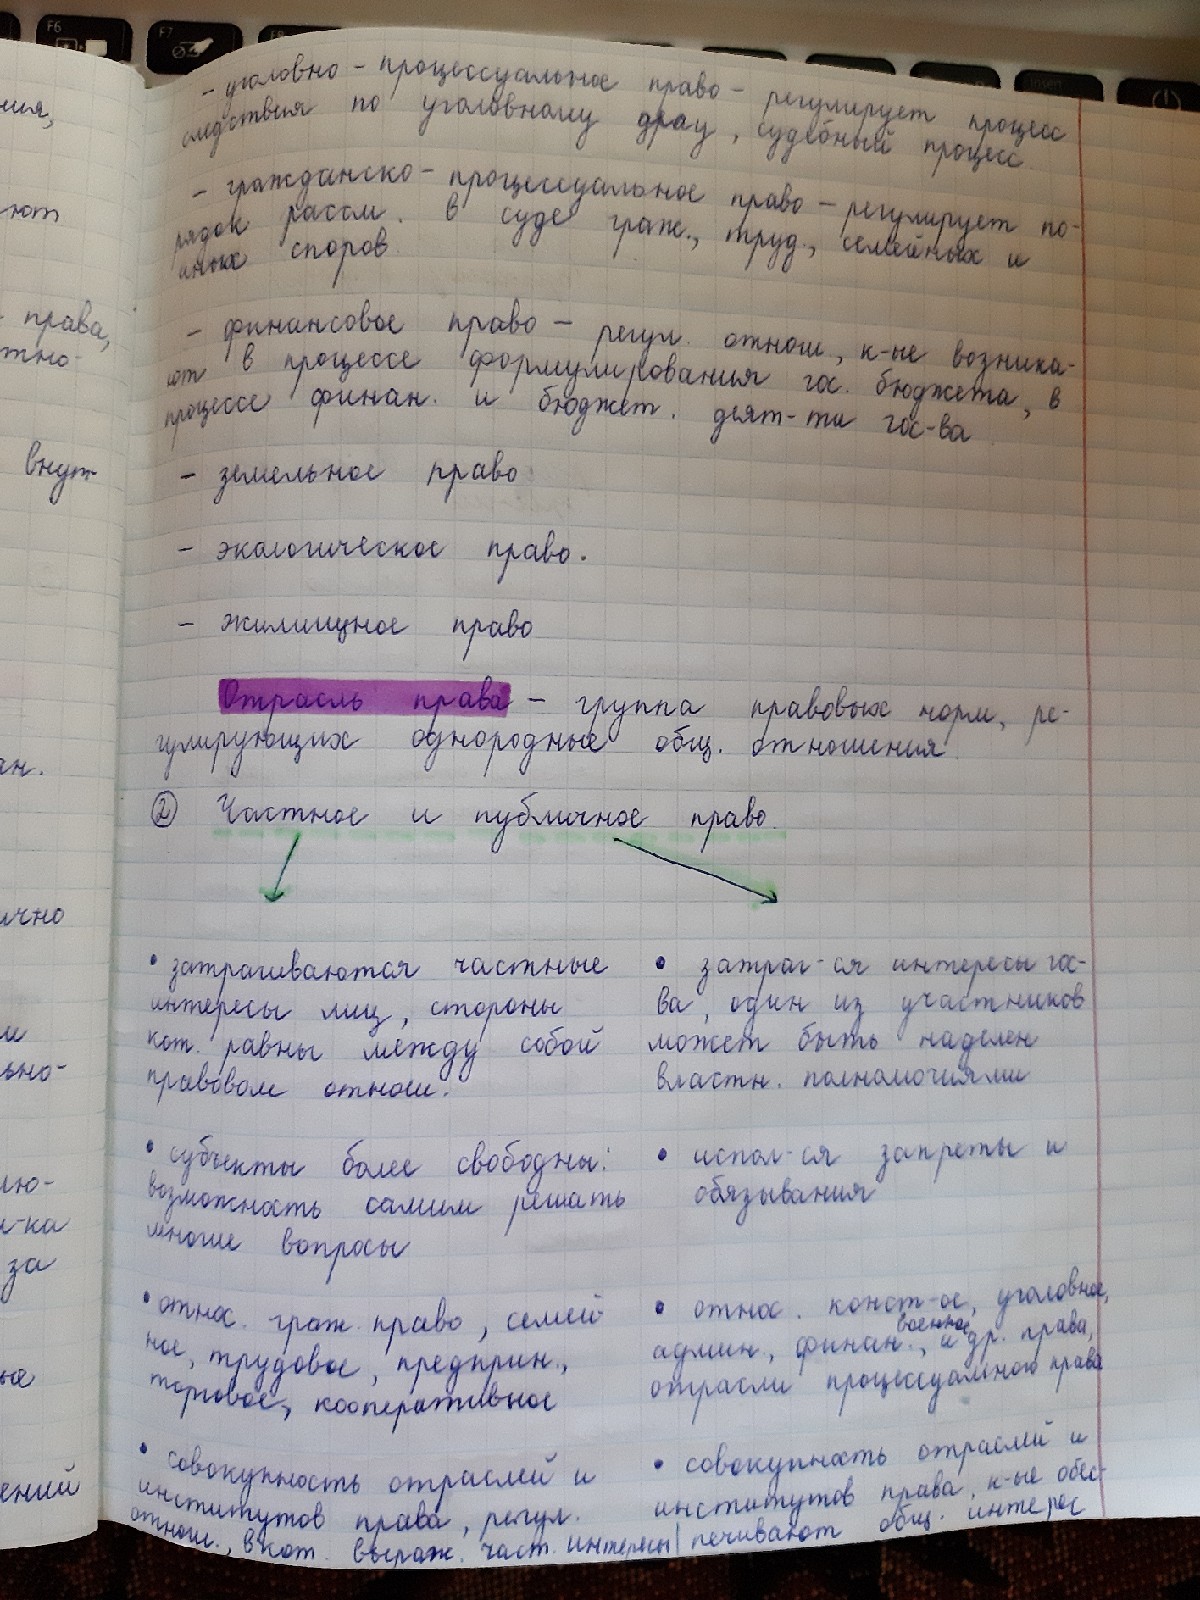 - уголовно - процессуальное право - регулирует процесс
следствия по уголовному делу, судебный процесс.
- гражданско - процессуальное право - регулирует по-
рядок рассм. в суде граж., труд., семейных и
иных споров.
- финансовое право - регул. отнош., к-ые возника-
ют в процессе формулирования гос. бюджета, в
процессе финан. и бюджет. деят-ти гос-ва
- земельное право
- экологическое право.
- жилищное право
Отрасль права - группа правовых норм, ре-
гулирующих однородные общ. отношения.
② Частное и публичное право.
• затрагиваются частные
интересы лиц, стороны
кот. равны между собой
правовом отнош.
• субъекты более свободны:
возможность самим решать
многие вопросы
• относ. граж. право, семей
ное, трудовое, предприн.,
торговое, кооперативное
• совокупность отраслей и
институтов права, регул.
отнош., в кот. выраж. част. интересы
• затраг-ся интересы гос-
ва, один из участников
может быть наделен
властн. полномочиями
• испол-ся запреты и
обязывания
• относ. конст-ое, уголовное,
админ., финан., военное и др. права,
отрасли процессуального права
• совокупность отраслей и
институтов права, к-ые обес-
печивают общ. интерес
ния,
ют
права,
тно-
внут-
ан.
ично
и
ьно-
лю-
и-ка
за
ые
ений
F6
F7
F8
Insert